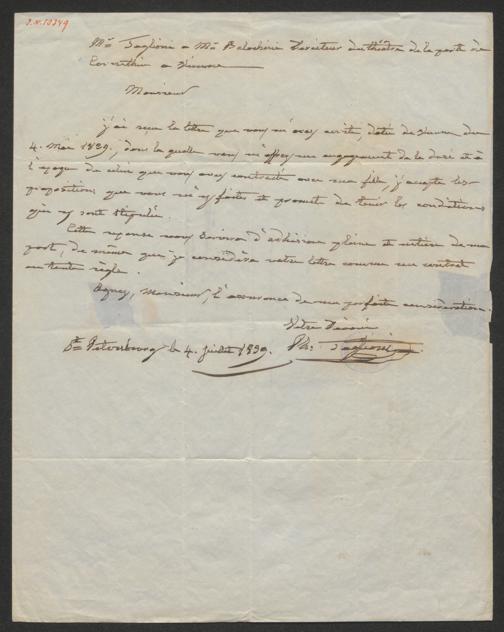 J.N. 10349
Mr. Taglioni a Mr. Balochini Directeur du théâtre de la porte de
Corinthie a Vienne
Monsieur
j'ai reçu la lettre que vous m'avez écrite, datée de Vienne du
4. Mai 1839, dans laquelle vous m'offrez un engagement de la duré et à
l'époque de celui que vous avez contracté avec ma fille, j'accepte les
propositions que vous m'y faites et promet de tenir les conditions
qui y sont stipulée.
Cette reponse vous servira d'adhésion pleine et entiere de ma
part, de même que je considère votre lettre comme un contrat
en toute règle.
Agréez, Monsieur, l'assurance de ma parfaite considération.
Votre Devoué
St. Petersbourg le 4. juillet 1839. Ph: Taglioni